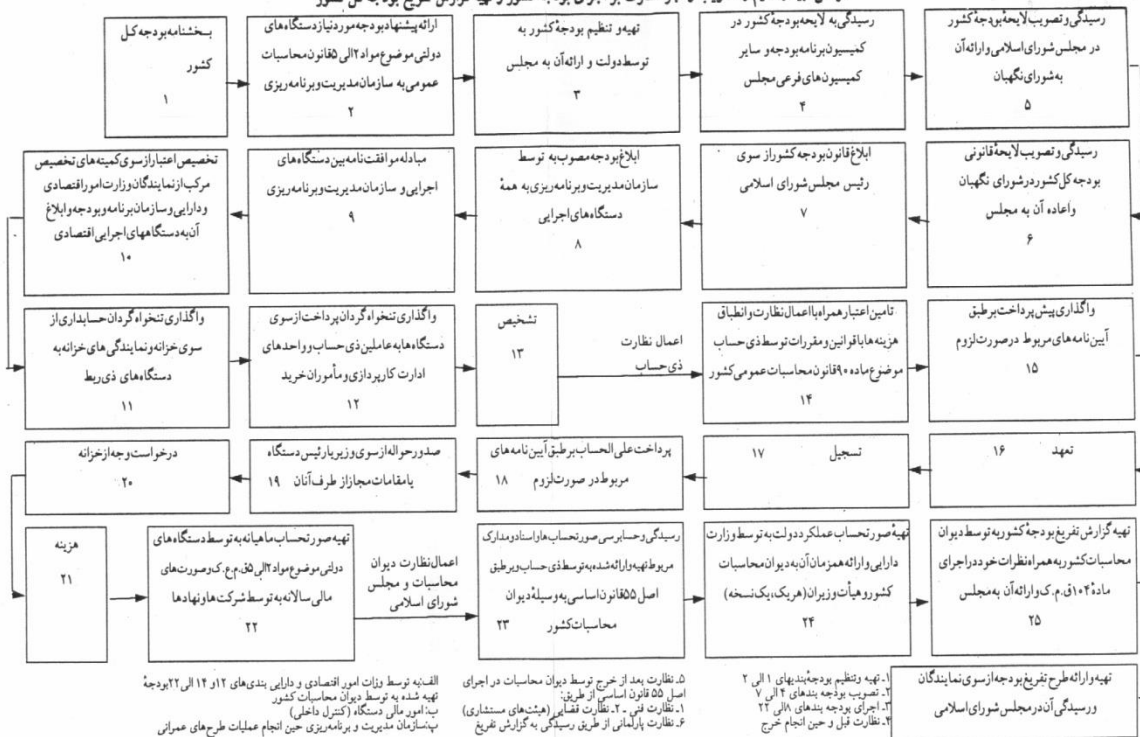 بخشنامه بودجه کل
کشور
۱
ارائه پیشنهاد بودجه مورد نیاز دستگاه های
دولتی موضوع مواد ۲الی ۵قانون محاسبات
عمومی به سازمان مدیریت و برنامه ریزی
۲
تهیه و تنظیم بودجهٔ کشور به
توسط دولت و ارائه آن به مجلس
۳
رسیدگی به لایحه بودجهٔ کشور در
کمیسیون برنامه بودجه و سایر
کمیسیون های فرعی مجلس
۴
رسیدگی و تصویب لایحهٔ بودجهٔ کشور
در مجلس شورای اسلامی و ارائه آن
به شورای نگهبان
۵
رسیدگی و تصویب لایحهٔ قانونی
بودجه کل کشور در شورای نگهبان
و اعاده آن به مجلس
۶
ابلاغ قانون بودجه کشور از سوی
رئیس مجلس شورای اسلامی
۷
ابلاغ بودجه مصوب به توسط
سازمان مدیریت و برنامه ریزی به همهٔ
دستگاه های اجرایی
۸
مبادله موافقت نامه بین دستگاه های
اجرایی و سازمان مدیریت و برنامه ریزی
۹
تخصیص اعتبار از سوی کمیته های تخصیص
مرکب از نمایندگان وزارت امور اقتصادی
و دارایی و سازمان برنامه و بودجه و ابلاغ
آن به دستگاههای اجرایی اقتصادی
۱۰
واگذاری تنخواه گردان حسابداری از
سوی خزانه و نمایندگی های خزانه به
دستگاه های ذی ربط
۱۱
واگذاری تنخواه گردان پرداخت از سوی
دستگاه ها به عاملین ذی حساب و واحدهای
ادارت کارپردازی و مأموران خرید
۱۲
تشخیص
۱۳
اعمال نظارت
ذی حساب
تامین اعتبار همراه با اعمال نظارت و انطباق
هزینه ها با قوانین و مقررات توسط ذی حساب
موضوع ماده ۹۰ قانون محاسبات عمومی کشور
۱۴
واگذاری پیش پرداخت بر طبق
آیین نامه های مربوط در صورت لزوم
۱۵
تعهد ۱۶
تسجیل ۱۷
پرداخت علی الحساب بر طبق آیین نامه های
مربوط در صورت لزوم ۱۸
صدور حواله از سوی وزیر یا رئیس دستگاه
یا مقامات مجاز از طرف آنان ۱۹
درخواست وجه از خزانه
۲۰
هزینه
۲۱
تهیه صورتحساب ماهیانه به توسط دستگاه های
دولتی موضوع مواد ۲الی ۵ق.م.ع.ک و صورت های
مالی سالانه به توسط شرکت ها و نهادها
۲۲
اعمال نظارت دیوان
محاسبات و مجلس
شورای اسلامی
رسیدگی و حسابرسی صورتحساب ها و اسناد و مدارک
مربوط تهیه و ارائه شده به توسط ذی حساب و بر طبق
اصل ۵۵ قانون اساسی به وسیلهٔ دیوان
محاسبات کشور ۲۳
تهیهٔ صورتحساب عملکرد دولت به توسط وزارت
دارایی و ارائه همزمان آن به دیوان محاسبات
کشور و هیأت وزیران (هر یک، یک نسخه)
۲۴
تهیه گزارش تفریغ بودجهٔ کشور به توسط دیوان
محاسبات کشور به همراه نظرات خود در اجرای
مادهٔ ۱۰۴ق.م.ک و ارائه آن به مجلس
۲۵
تهیه و ارائه طرح تفریغ بودجه از سوی نمایندگان
و رسیدگی آن در مجلس شورای اسلامی
۱ـ تهیه و تنظیم بودجهٔ بندیهای ۱ الی ۲
۲ـ تصویب بودجه بندهای ۴ الی ۷
۳ـ اجرای بودجه بندهای ۸الی ۲۲
۴ـ نظارت قبل و حین انجام خرج
۵ـ نظارت بعد از خرج توسط دیوان محاسبات در اجرای
اصل ۵۵ قانون اساسی از طریق:
۱ـ نظارت فنی ـ ۲ـ نظارت قضایی (هیئت های مستشاری)
۶ـ نظارت پارلمانی از طریق رسیدگی به گزارش تفریغ
الف: به توسط وزات امور اقتصادی و دارایی بندی های ۱۲و ۱۴ الی ۲۲بودجهٔ
تهیه شده به توسط دیوان محاسبات کشور
ب: امور مالی دستگاه (کنترل داخلی)
پ: سازمان مدیریت و برنامه ریزی حین انجام عملیات طرح های عمرانی